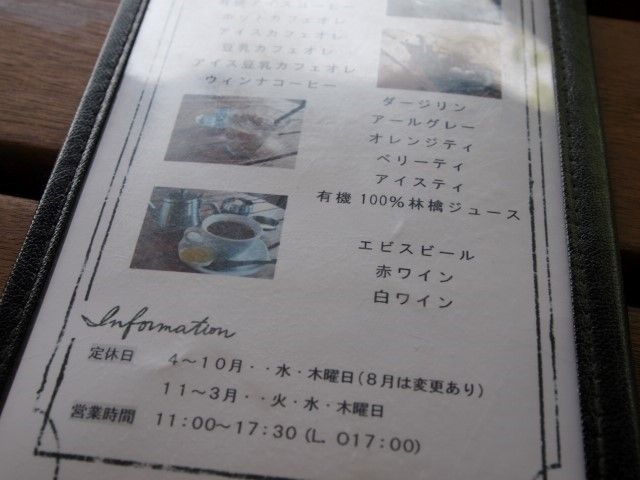 ホットカフェオレ
アイスカフェオレ
豆乳カフェオレ
アイス豆乳カフェオレ
ウィンナコーヒー
ダージリン
アールグレー
オレンジティ
ベリーティ
アイスティ
有機100%林檎ジュース
エビスビール
赤ワイン
白ワイン
Information
定休日 4〜10月・・水・木曜日(8月は変更あり)
11〜3月・・火・水・木曜日
営業時間 11:00〜17:30(L. O17:00)